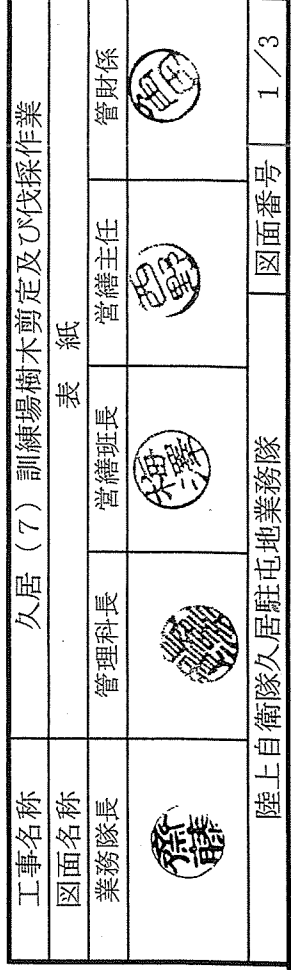 工事名称 久居（7）訓練場樹木剪定及び伐採作業
図面名称 表紙
業務隊長 管理科長 営繕班長 営繕主任 管財係
齋藤 梅澤 西野
陸上自衛隊久居駐屯地業務隊 図面番号 1／3